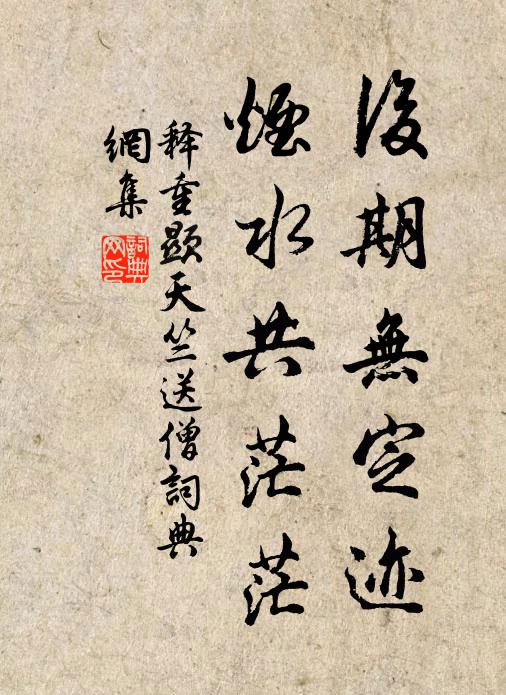 後期無定迹
煙水共茫茫
释重顯天竺送僧詞典
網集
詞典網印